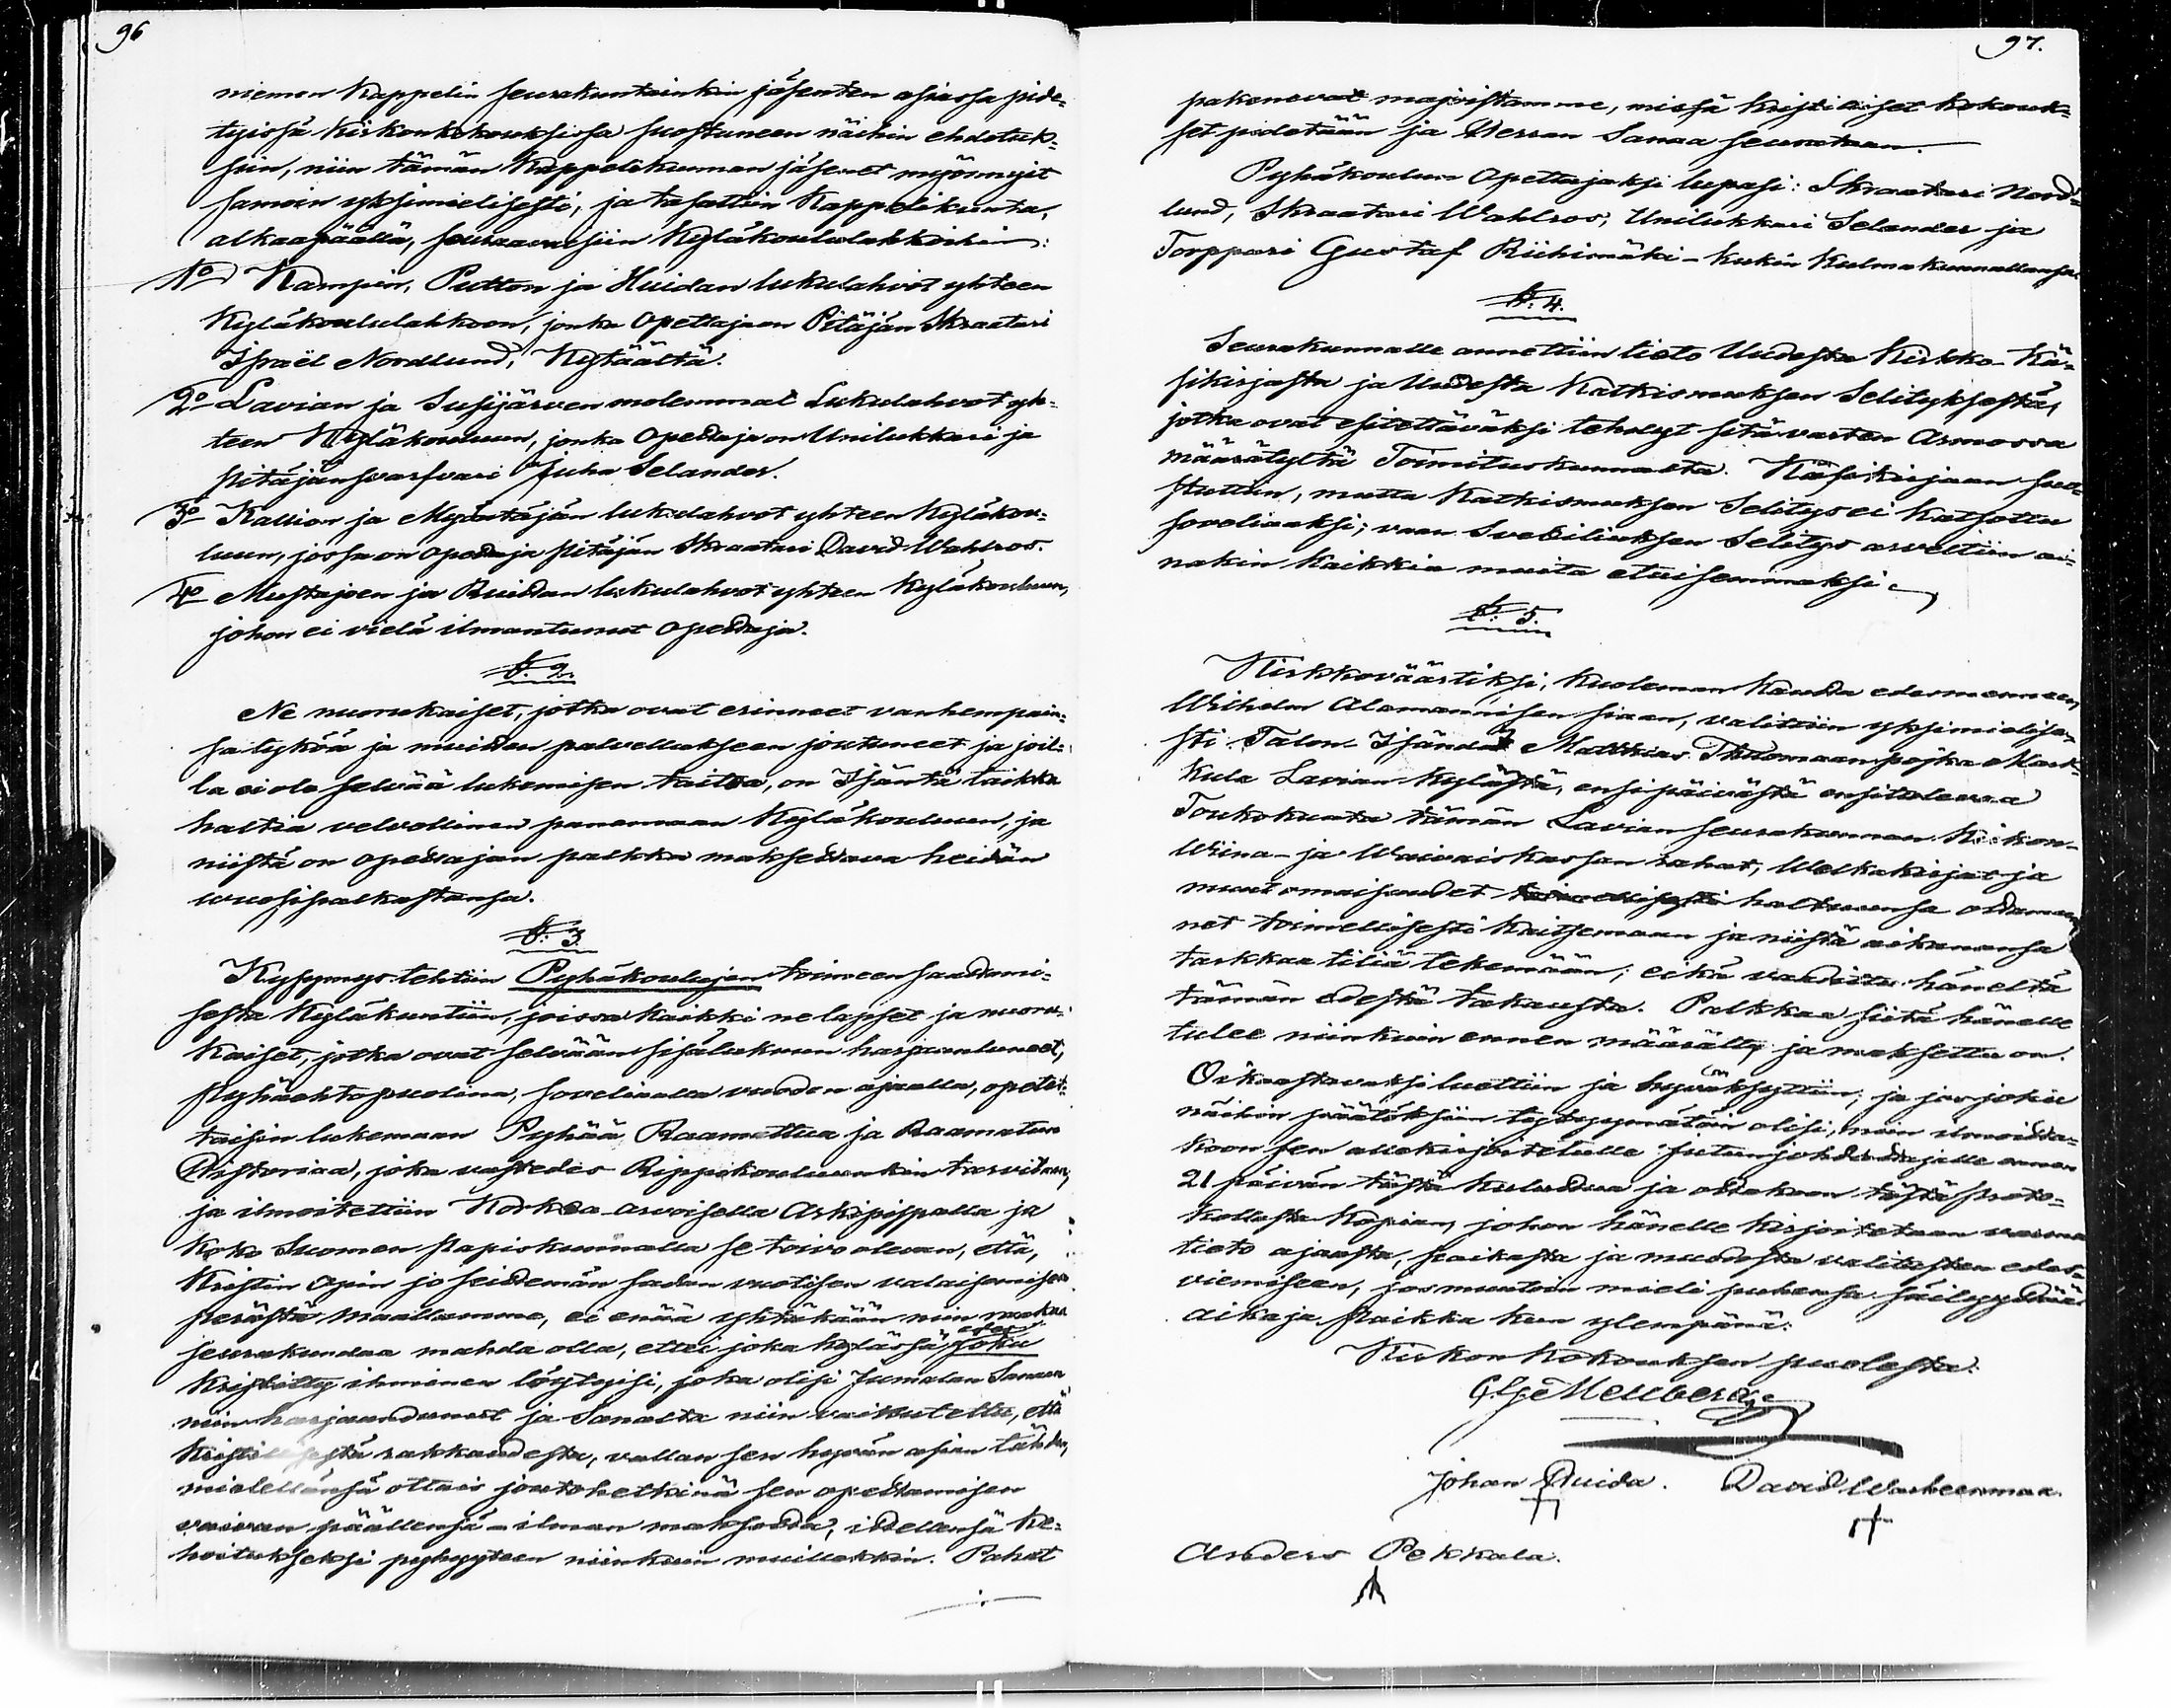 96
niemen Kappelin seurakuntainkin jäsenten asiassa pide-
tyissä Kirkonkokouksissa suostuneen näihin ehdotuk-
siin, niin tämän Kappelikunnan jäsenet myönnyit
samoin yksimielisesti, ja jaettiin Kappelikunta,
alkaapäällä, seuraavaisiin Kyläkoululahkoihin:
1o Kampin, Putton ja Huidan lukulahvot yhteen
Kyläkoululahkoon, jonka Opettaja on Pitäjän Skraatari
Israël Nordlund, Kytäältä.
2o Lavian ja Susijärven molemmat Lukulahvot yh-
teen Kyläkouluun, jonka Opettaja on Unilukkari ja
pitäjänsvarfvari Juha Selander.
3o Kallion ja Myöntäjän lukulahvot yhteen Kyläkou-
luun, jossa on opettaja pitäjän Skraatari David Wahlroos.
4o Mustajoen ja Ruidan lukulahvot yhteen Kyläkouluun,
johon ei vielä ilmantunut opettaja.
§. 2.
Ne nuorukaiset, jotka ovat erinneet vanhempain-
sa tyköä ja muiden palvellukseen joutuneet ja joil-
la ei ole selvää lukemisen taitoa, on Isäntä taikka
haltia velvollinen panemaan Kyläkouluun, ja
niistä on opettajan palkka maksettava heidän
wuosipalkastansa.
§. 3.
Kysymys tehtiin Pyhäkoulujen toimeen saattami-
sesta Kyläkuntiin, joissa kaikki ne lapset ja nuoru-
kaiset, jotka ovat selvään sisälukuun harjaantuneet,
Pyhäehtopuolina, soveliaalla vuoden ajaalla, opetet-
taisiin lukemaan Pyhää Raamattua ja Raamatun
Historiaa, joka vastedes Rippikouluunkin tarvitaan,
ja ilmoitettiin Korkea-arvoisella Arkipispalla ja
koko Suomen Papiskunnalla se toivo olevan, että,
Kristin opin jo seitsemän sadan vuotisen valaisemisen
perästä maallamme, ei enää yhtäkään niin
seurakuntaa mahda olla, ettei joka kylässä, joku
Kristitty ihminen löytyisi, joka olisi Jumalan Sanaan
niin harjaandunut ja Sanalta niin vaikutettu, että
Kristillisestä rakkaudesta, vallan sen hyvän asian tähden,
mielellänsä ottais joutohetkinä sen opettamisen
vaivan päällensä – ilman maksotta, itsellensä ke-
hoitukseksi pyhyyteen niinkuin muillekkin. Pahat
97.
pakenevat majoistamme, missä kristilliset kokouk-
set pidetään ja Herran Sanaa seurataan.
Pyhäkoulun Opettajaksi lupasi: Skraatari Nord-
lund, Skraatari Wahlroos, Unilukkari Selander ja
Torppari Gustaf Riihimäki – kukin kulmakunnallansa.
§. 4.
Seurakunnalle annettiin tieto Uudesta Kirkko-Kä-
sikirjasta ja Uudesta Katkismuksen Selityksestä,
jotka ovat esitettäväksi tehdyt sitä varten Armossa
määrätyltä Toimituskunnalta. Käsikirjaan suo-
stuttiin, mutta Katkismuksen Selitys ei katsottu
soveliaaksi; vaan Svebiliuksen Selitys arveltiin ai-
nakin kaikkia muita etuisemmaksi.
§. 5.
Kirkkoväärtiksi, kuoleman kautta edesmenneen
Wilhelm Alamannisen siaan, valittiin yksimielise-
sti Talon-Isändä Matthias Thuomaanpojka Mark-
kula Lavian kylästä, ensi päivästä ensitulevaa
Toukokuuta tämän Lavian seurakunnan Kirkon-
Wiina- ja Waivaiskassan rahat, Welkakirjat ja
muut omaisuudet haltuunsa ottamaan
net toimellisesti kaitsemaan ja niistä aikananansa
tarkkaa tiliä tekemään; eikä vaadittu häneltä
tämän edestä takausta. Palkkaa siitä hänelle
tulee niinkuin ennen määrätty ja maksettu on.
Oikaistavaksi luettiin ja hyväksyttiin; ja jos jokin
näihin päätöksiin tyytyymätöin olisi, niin ilmoitta-
koon sen allekirjoitetulle istunjohdattajalle ennen
21 päivän tästä kuluttua ja ottakoon tästä proto-
kollasta Kopian, johon hänelle kirjoitetaan varma
tieto ajaasta, paikasta ja muodosta valituksen edes-
viemiseen, jos muutoin mieli puhensa säilyyttää
Aika ja paikka kun ylempänä.
Kirkon Kokouksen puolesta:
Mellberg
Johan Ruida. David Warheenmaa
Anders Pekkala.